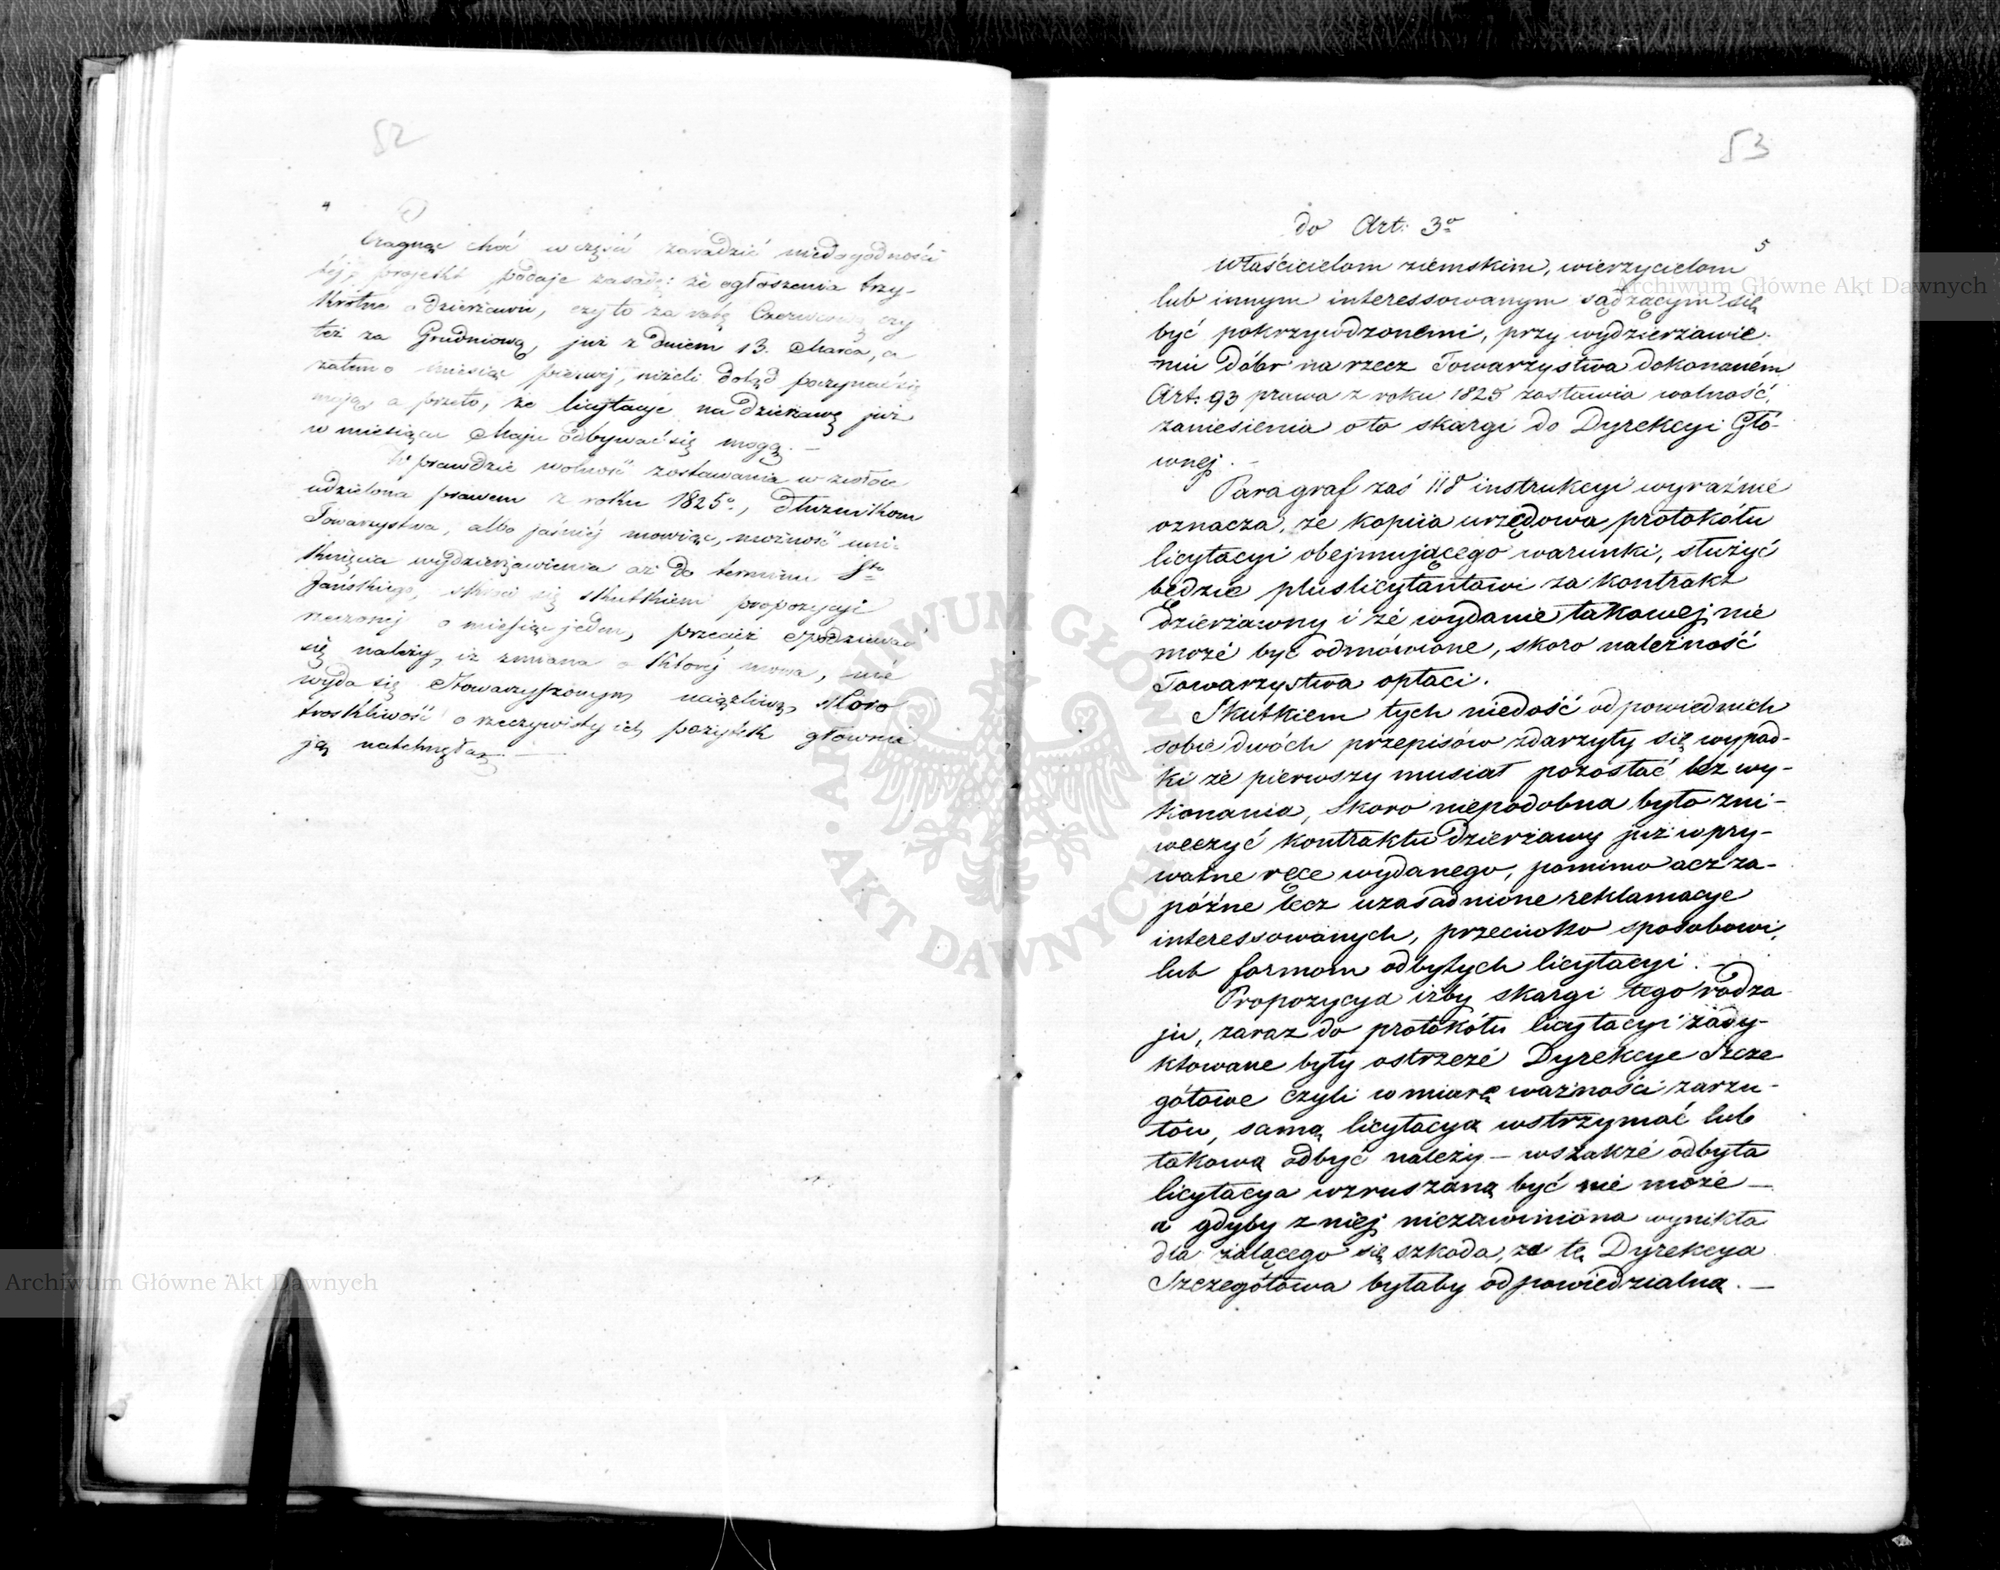 52
4
Pragnąc choć w części zaradzić niedogodności
tej, projekt podaje zasadę: że ogłoszenia trzy-
krotne o dzierżawie, czy to za ratę Czerwcową czy
też za Grudniową, już z dniem 13. Marca, a
zatem o miesiąc pierwej, niżeli dotąd poczynać się
mają, a przeto, że licytacje na dzierżawę już
w miesiącu Maju odbywać się mogą. —
W prawdzie wolność zostawania w zwłoce
udzielona prawem z roku 1825o, dłużnikom
Towarzystwa, albo jaśniej mówiąc, możność uni-
knięcia wydzierżawienia aż do terminu Sto
Jańskiego, skróci się skutkiem propozycyi
rzeczonej o miesiąc jeden, przecież spodziewać
się należy, iż zmiana o której mowa, nie
wyda się Stowarzyszonym uciążliwą, skoro
troskliwość o rzeczywisty ich pożytek głównie
ją natchnęła. —
53
do Art: 3o
5
Właścicielom ziemskim, wierzycielom
lub innym interessowanym sądzącym się
być pokrzywdzonemi, przy wydzierżawie-
niu Dóbr na rzecz Towarzystwa dokonaném
Art: 93 prawa z roku 1825 zostawia wolność,
zaniesienia o to skargi do Dyrekcyi Głó-
wnej. —
Paragraf zaś 118 instrukcyi wyraźnie
oznacza, że kopiia urzędowa protokółu
licytacyi obejmującego warunki, służyć
będzie pluslicytantowi za kontrakt
Dzierżawny i że wydanie takowej nie
może być odmówione, skoro należność
Towarzystwa opłaci.
Skutkiem tych niedość odpowiednich
sobie dwóch przepisów zdarzyły się wypad-
ki że pierwszy musiał pozostać bez wy-
konania, skoro niepodobna było zni-
weczyć kontraktu Dzierżawy już w pry-
watne ręce wydanego, pomimo acz za-
późne lecz uzasadnione reklamacye
interessowanych, przeciwko sposobowi,
lub formom odbytych licytacyi. —
Propozycya iżby skargi tego rodza
ju, zaraz do protokółu licytacyi zady-
ktowane były ostrzeże Dyrekcye Szcze
gółowe czyli w miarę ważności zarzu-
tów, samą licytacyą wstrzymać lub
takową odbyć należy — wszakże odbyta
licytacya wzruszaną być nie może —
a gdyby z niej niezawiniona wynikła
dla żalącego się szkoda, za tę Dyrekcya
Szczegółowa byłaby odpowiedzialną. —
Archiwum Główne Akt Dawnych
Archiwum Główne Akt Dawnych
ARCHIWUM GŁÓWNE • AKT DAWNYCH •